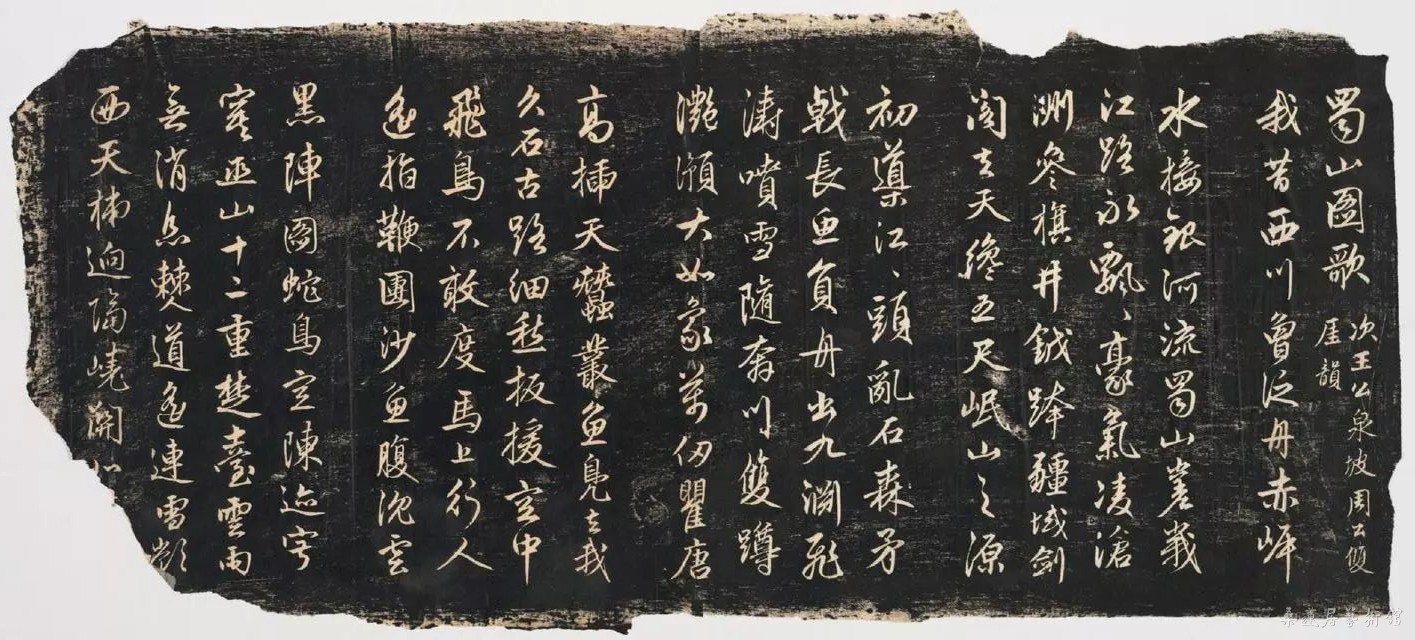 蜀山圖歌 次王公泉坡周公雙
崖韻
我昔西川曾泛舟赤岸
水接銀河流蜀山嵳峩
江路永飄〻豪氣凌滄
洲參旗井鉞跨疆域劍
閣去天纔五尺岷山之源
初導江〻頭亂石森矛
戟長魚負舟出九淵飛
濤噴雪隨奔川雙蹲
灩澦大如象萬仞瞿唐
高插天蠶叢魚鳧去我
久石古路細愁扳援空中
飛鳥不敢度馬上行人
遙指鞭團沙魚腹沈雲
黑陣圖蛇鳥空陳迹
巫山十二重楚臺雲雨
無消息僰道遙連雪嶺
西天梯逈隔嶢關北
桑蓮居藝術館